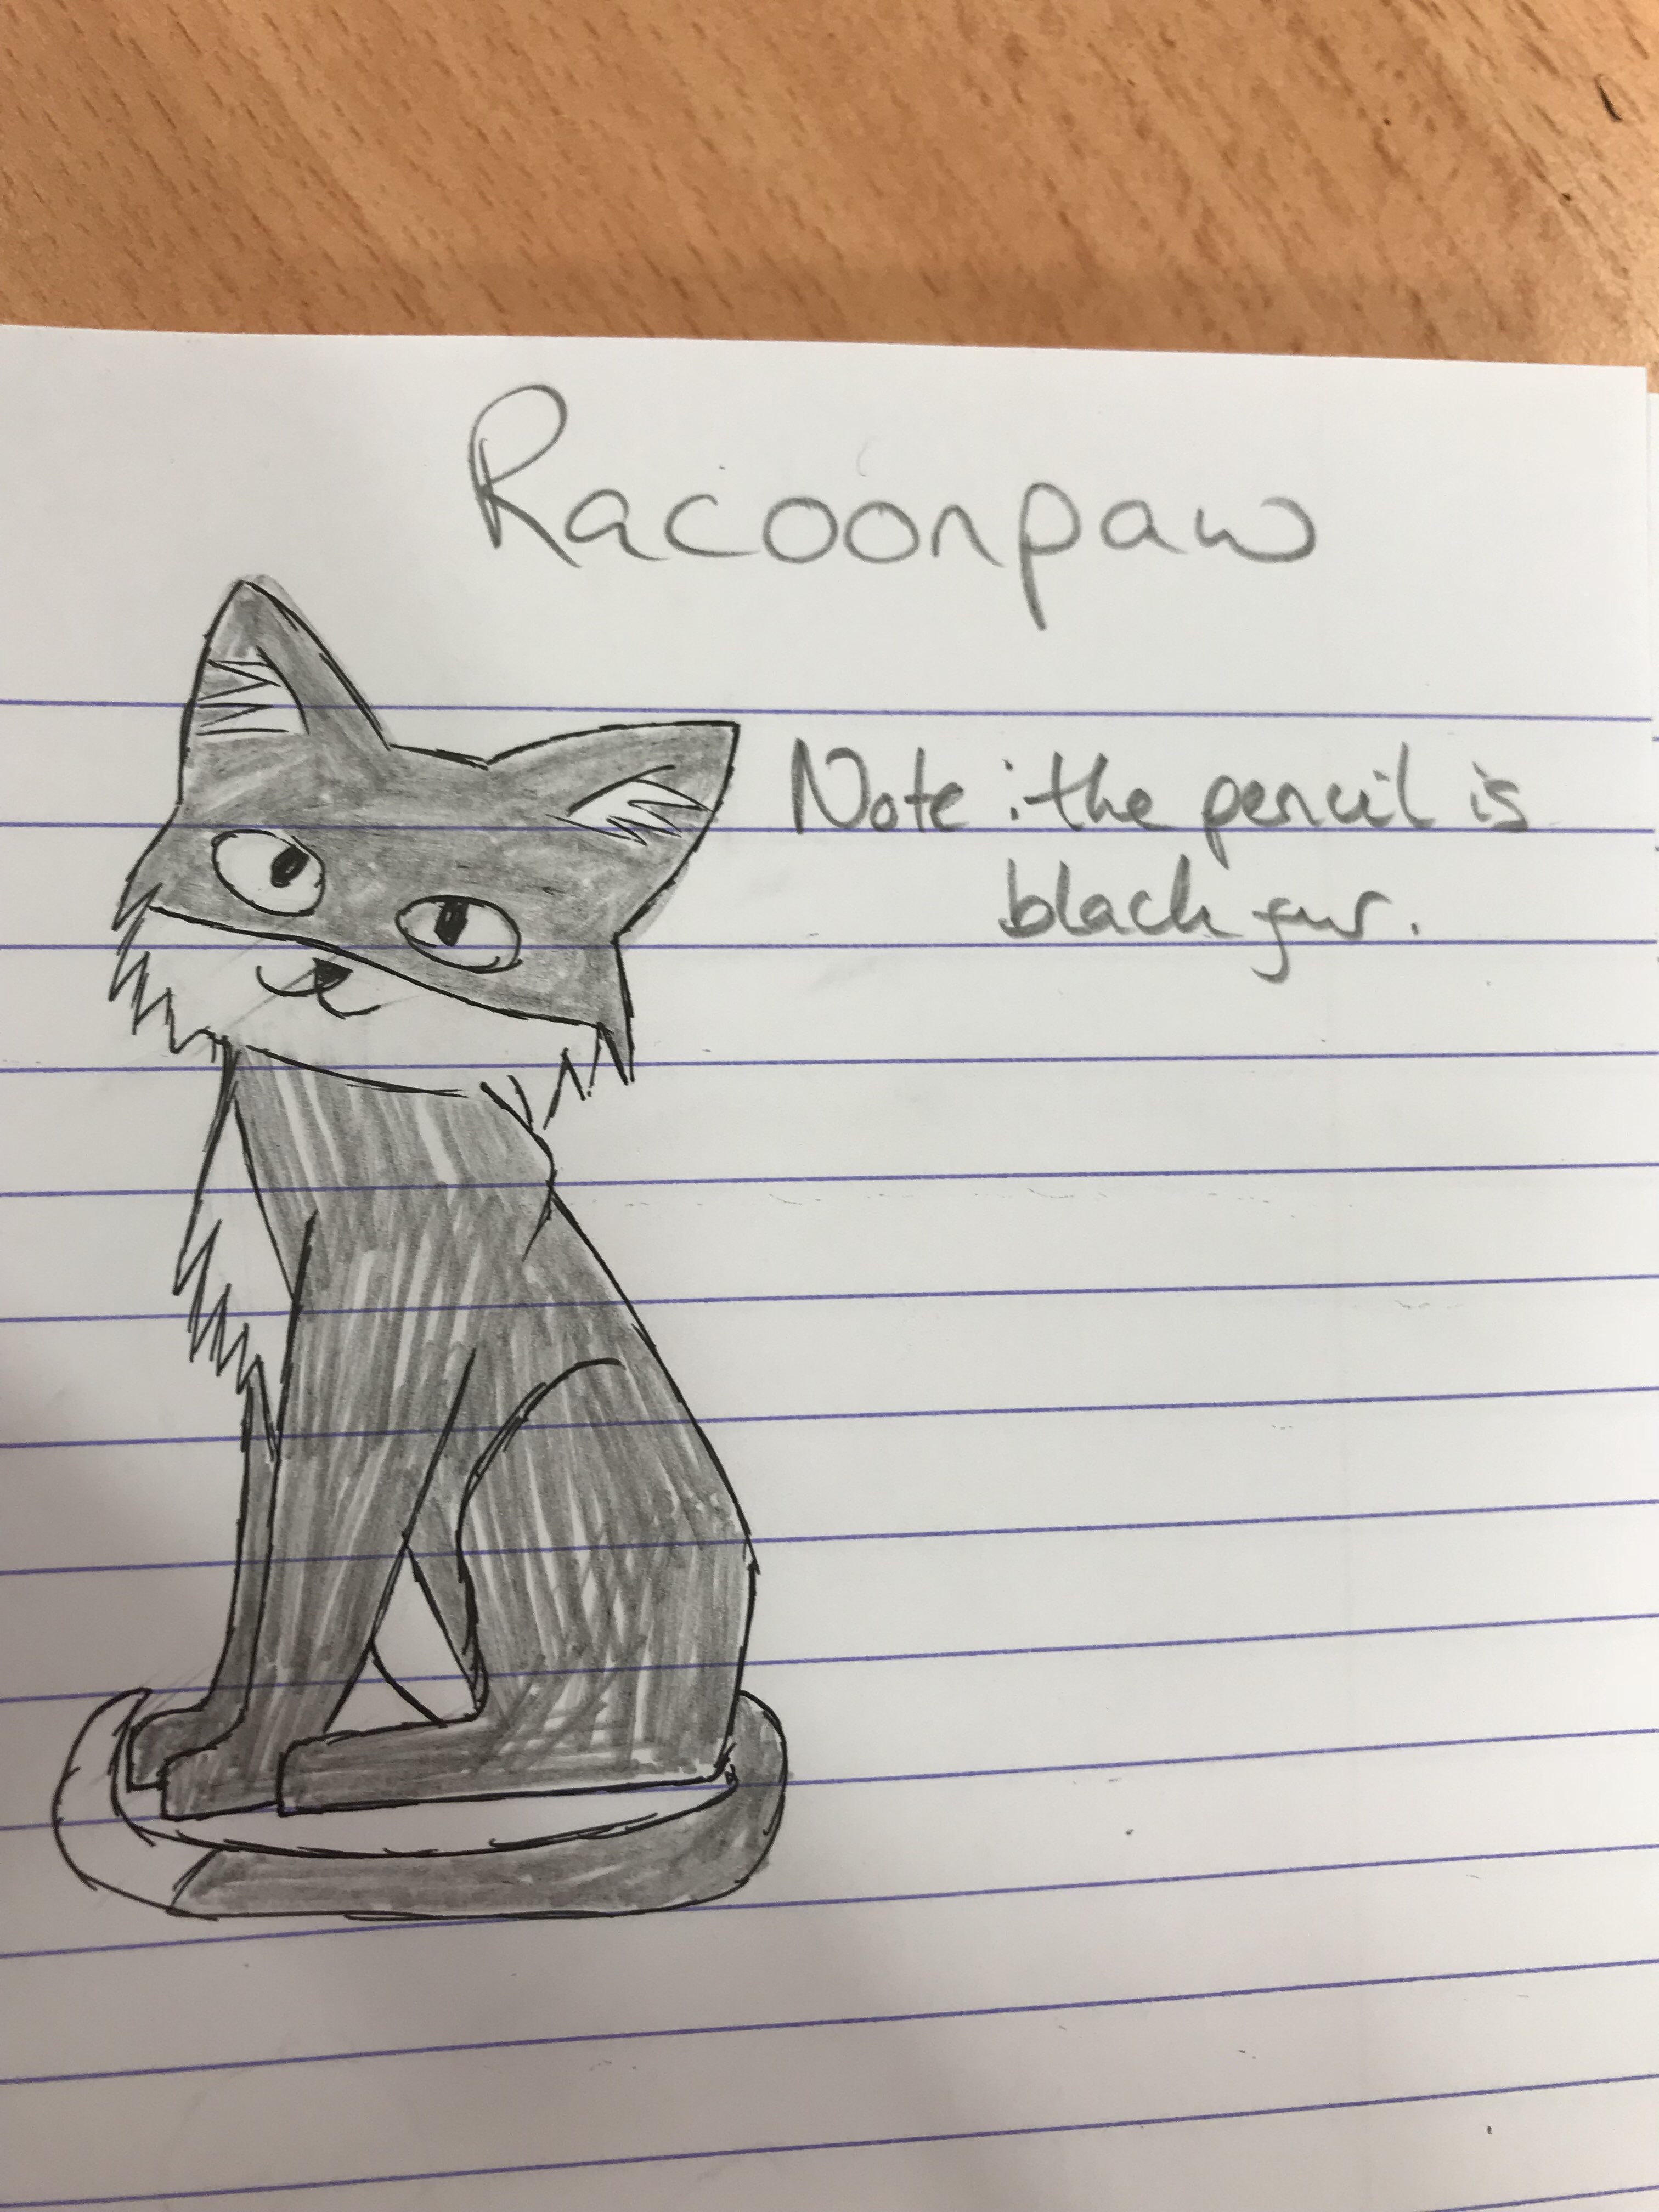 Racoonpaw
Note: the pencil is
black fur.